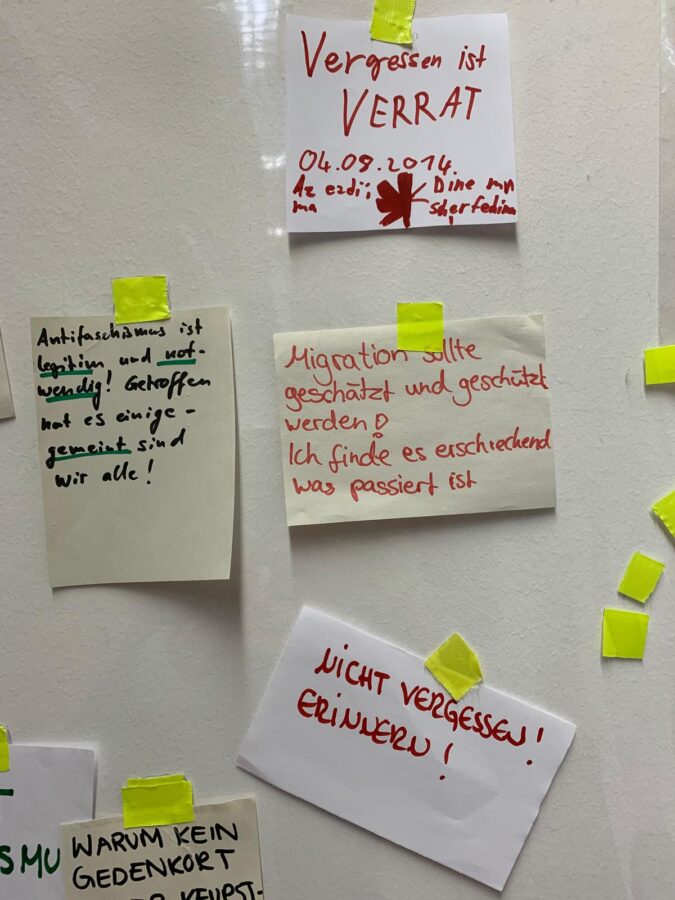 Vergessen ist
VERRAT
04.08.2014.
Az ezdi;
ma
Dine mn
scherfedina
Antifaschismus ist
legitim und not-
wendig! Getroffen
hat es einige -
gemeint sind
wir alle!
Migration sollte
geschätzt und geschützt
werden!
Ich finde es erschreckend
was passiert ist
NICHT VERGESSEN!
ERINNERN!
SMU
WARUM KEIN
GEDENKORT